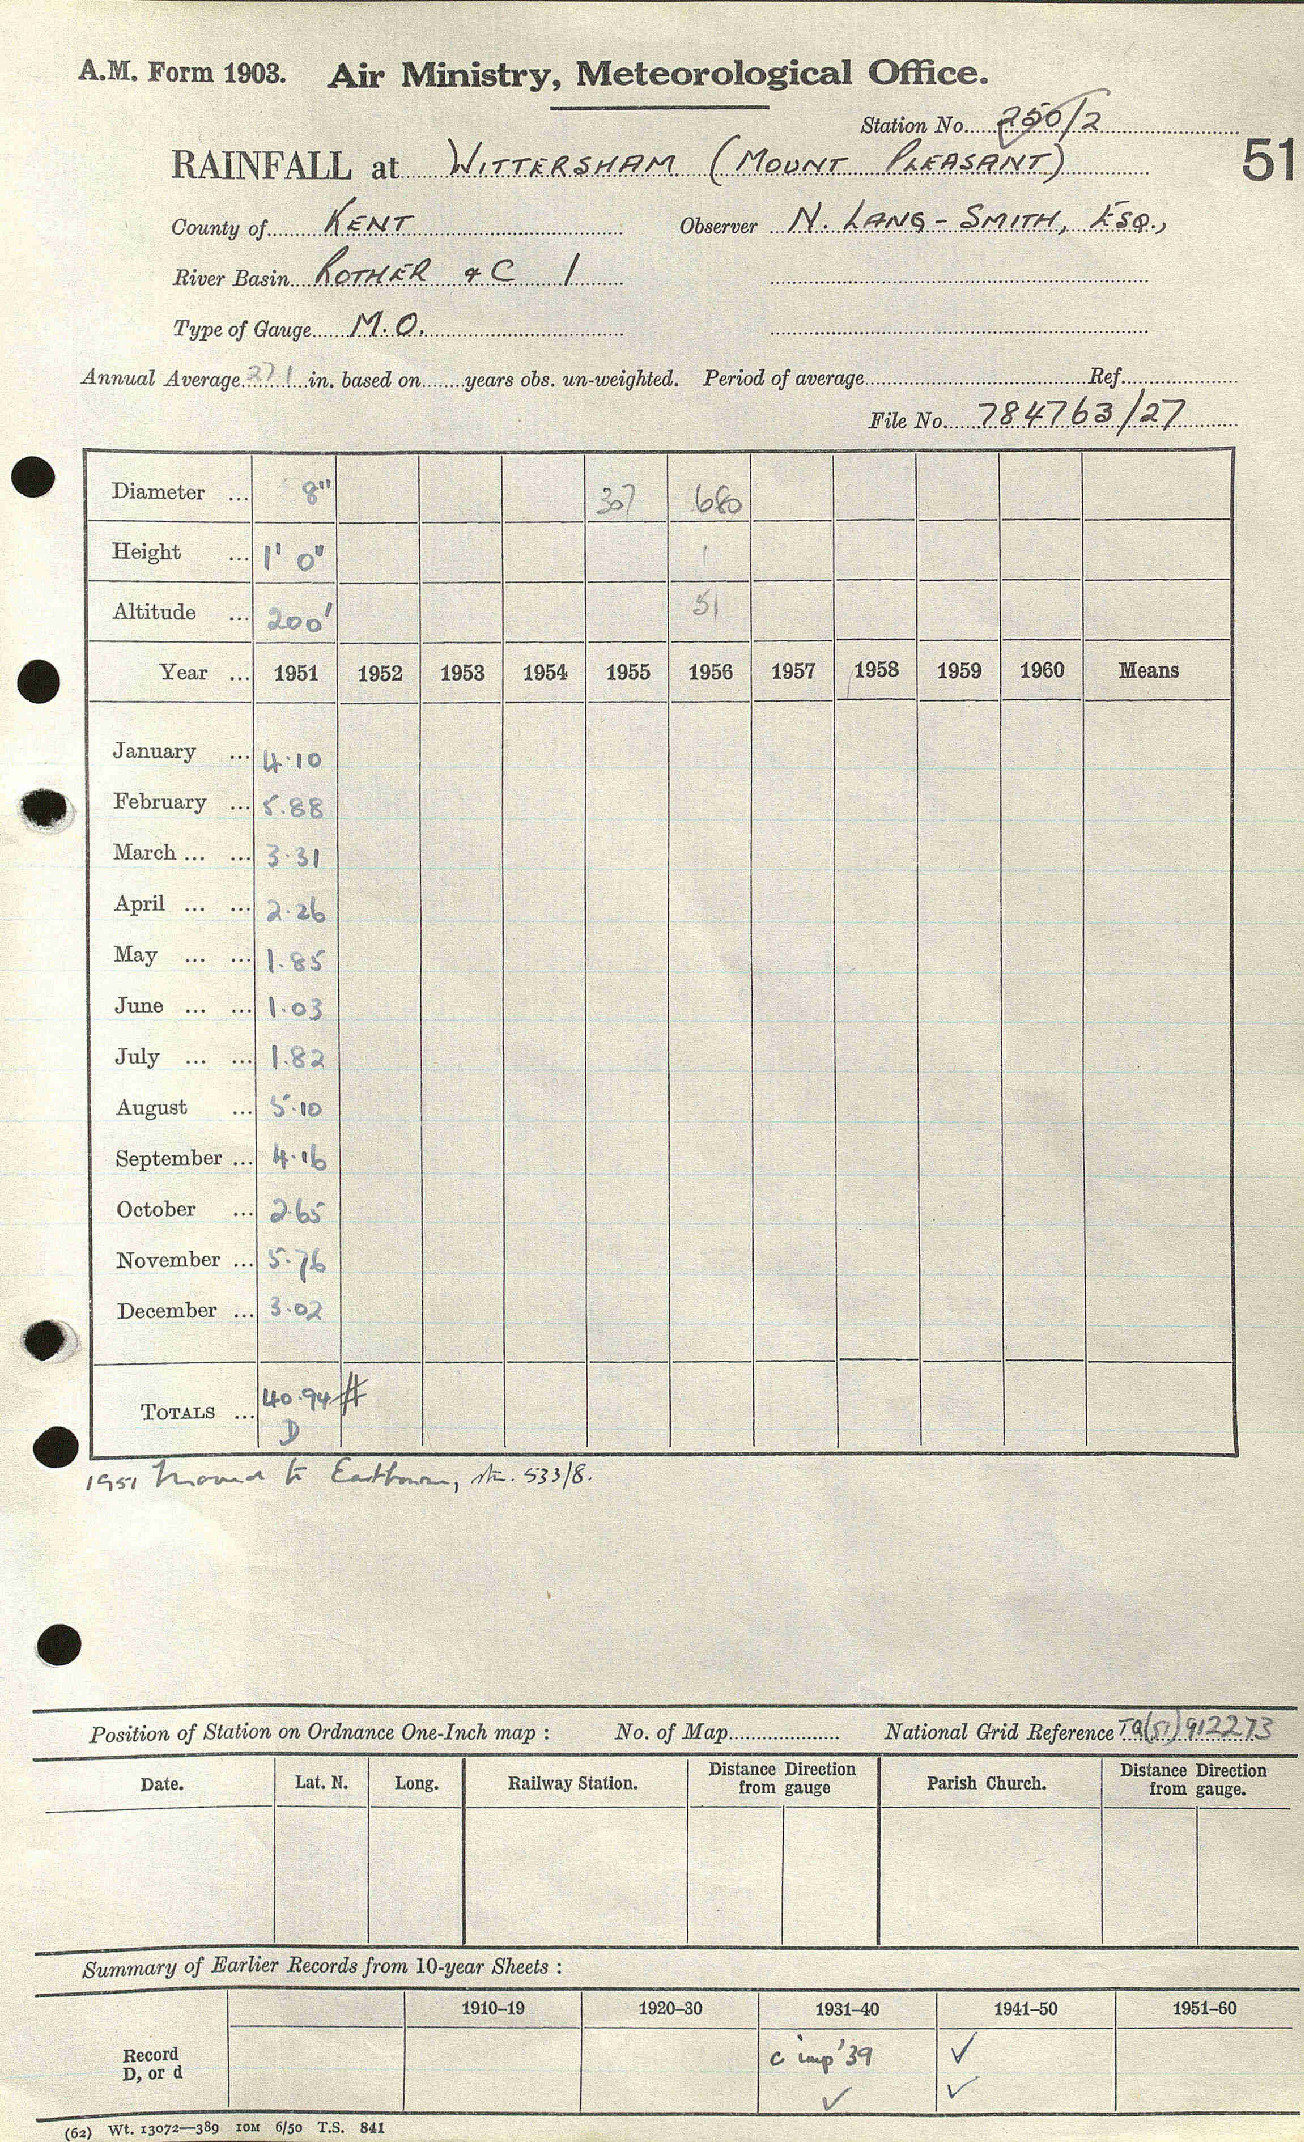 A.M. Form 1903. Air Ministry, Meteorological Office.
Station No. 250/2
RAINFALL at WITTERSHAM (MOUNT PLEASANT) 51
County of KENT Observer N. LANG-SMITH, ESQ.,
River Basin ROTHER & C 1
Type of Gauge M.O.
Annual Average 27 1 in. based on years obs. un-weighted. Period of average Ref.
File No. 784763/27
Diameter ... 8" 307 680
Height ... 1' 0" 1
Altitude ... 200' 51
Year ... 1951 1952 1953 1954 1955 1956 1957 1958 1959 1960 Means
January ... 4.10
February ... 5.88
March ... ... 3.31
April ... ... 2.26
May ... ... 1.85
June ... ... 1.03
July ... ... 1.82
August ... 5.10
September ... 4.16
October ... 2.65
November ... 5.76
December ... 3.02
TOTALS ... 40.94 #
D
1951 Moved to Eastbourne, stn. 533/8.
Position of Station on Ordnance One-Inch map : No. of Map National Grid Reference TQ(51)912273
Date. Lat. N. Long. Railway Station. Distance from Direction gauge Parish Church. Distance from Direction gauge.
Summary of Earlier Records from 10-year Sheets :
1910–19 1920–30 1931–40 1941–50 1951–60
Record c imp '39 ✓
D, or d ✓ ✓
(62) Wt. 13072—389 10M 6/50 T.S. 841